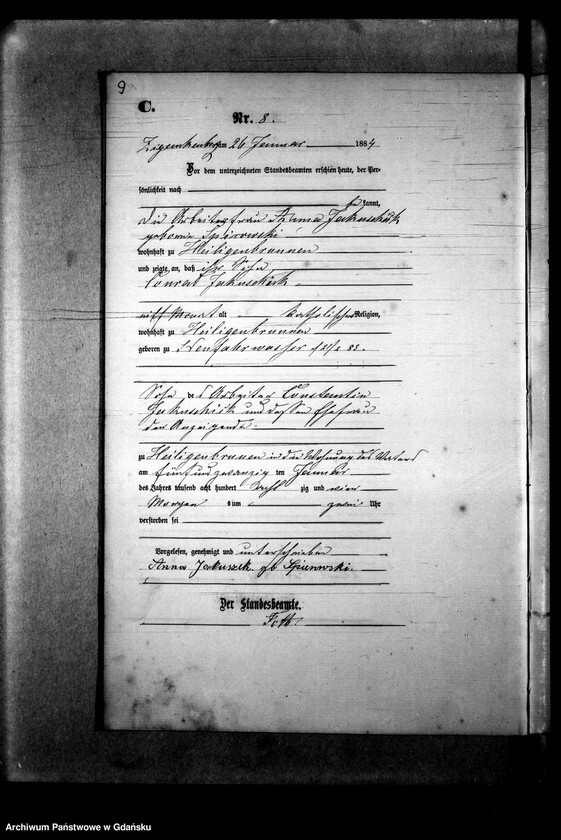 9
C.
Nr. 8.
Zigankenberg am 26 Januar 1884
Vor dem unterzeichneten Standesbeamten erschien heute, der Per-
sönlichkeit nach
be kannt,
die Arbeiterfrau Anna Jakuschick
geborne
wohnhaft zu Heiligenbrunnen
und zeigte an, daß ihr Sohn
Conrad Jakuschick
elf Monat alt katholischer Religion,
wohnhaft zu Heiligenbrunnen
geboren zu Neufahrwasser
Sohn des Arbeiter Constantin
Jakuschick und dessen Ehefrau
der Anzeigende
zu Heiligenbrunnen in der Wohnung des Vaters
am fünfundzwanzig ten Januar
des Jahres tausend acht hundert acht zig und vier
Morgen s um zwei Uhr
verstorben sei
Vorgelesen, genehmigt und unterschrieben
Anna Jakuszek gb
Der Standesbeamte.
Archiwum Państwowe w Gdańsku